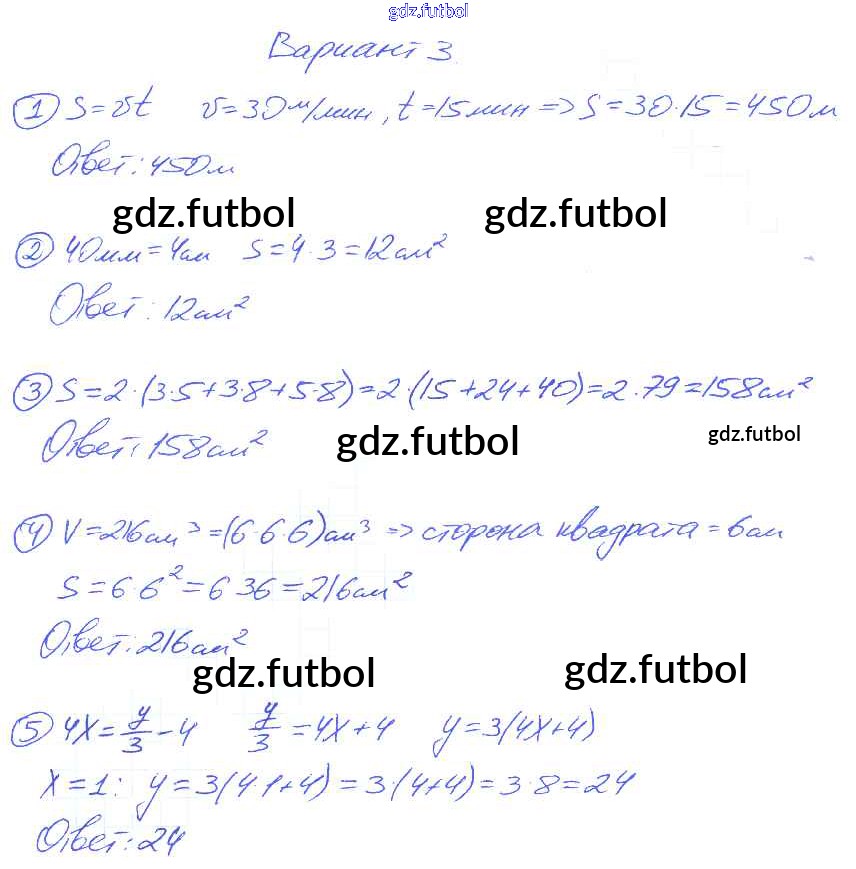 gdz.futbol
Вариант 3.
① S=vt v=30м/мин, t=15мин => S=30·15=450м
Ответ: 450м
gdz.futbol gdz.futbol
② 40мм=4см S=4·3=12см²
Ответ: 12см²
③ S=2·(3·5+3·8+5·8)=2·(15+24+40)=2·79=158см²
Ответ: 158см²
gdz.futbol gdz.futbol
④ V=216см³=(6·6·6)см³ => сторона квадрата=6см
S=6·6²=6·36=216см²
Ответ: 216см²
gdz.futbol gdz.futbol
⑤ 4x=y/3-4 y/3=4x+4 y=3(4x+4)
x=1: y=3(4·1+4)=3·(4+4)=3·8=24
Ответ: 24